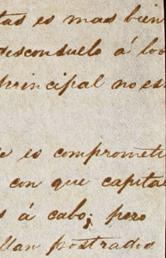 tas es mas bien
desconsuelo á los
principal no es
es compromete
con que capita
á cabo; pero
llan postrados